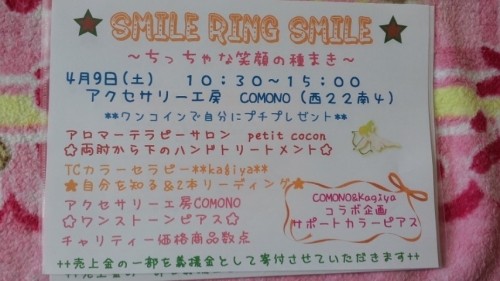 ★ SMILE RING SMILE ★
～ちっちゃな笑顔の種まき～
4月9日(土) 10:30～15:00
アクセサリー工房 COMONO (西22南4)
**ワンコインで自分にプチプレゼント**
アロマーテラピーサロン petit cocon
✩両肘から下のハンドトリートメント✩
TCカラーセラピー**kagiya**
★自分を知る&2本リーディング★
アクセサリー工房COMONO
✩ワンストーンピアス✩
チャリティー価格商品数点
COMONO&Kagiya
コラボ企画
サポートカラーピアス
++売上金の一部を義援金として寄付させていただきます++